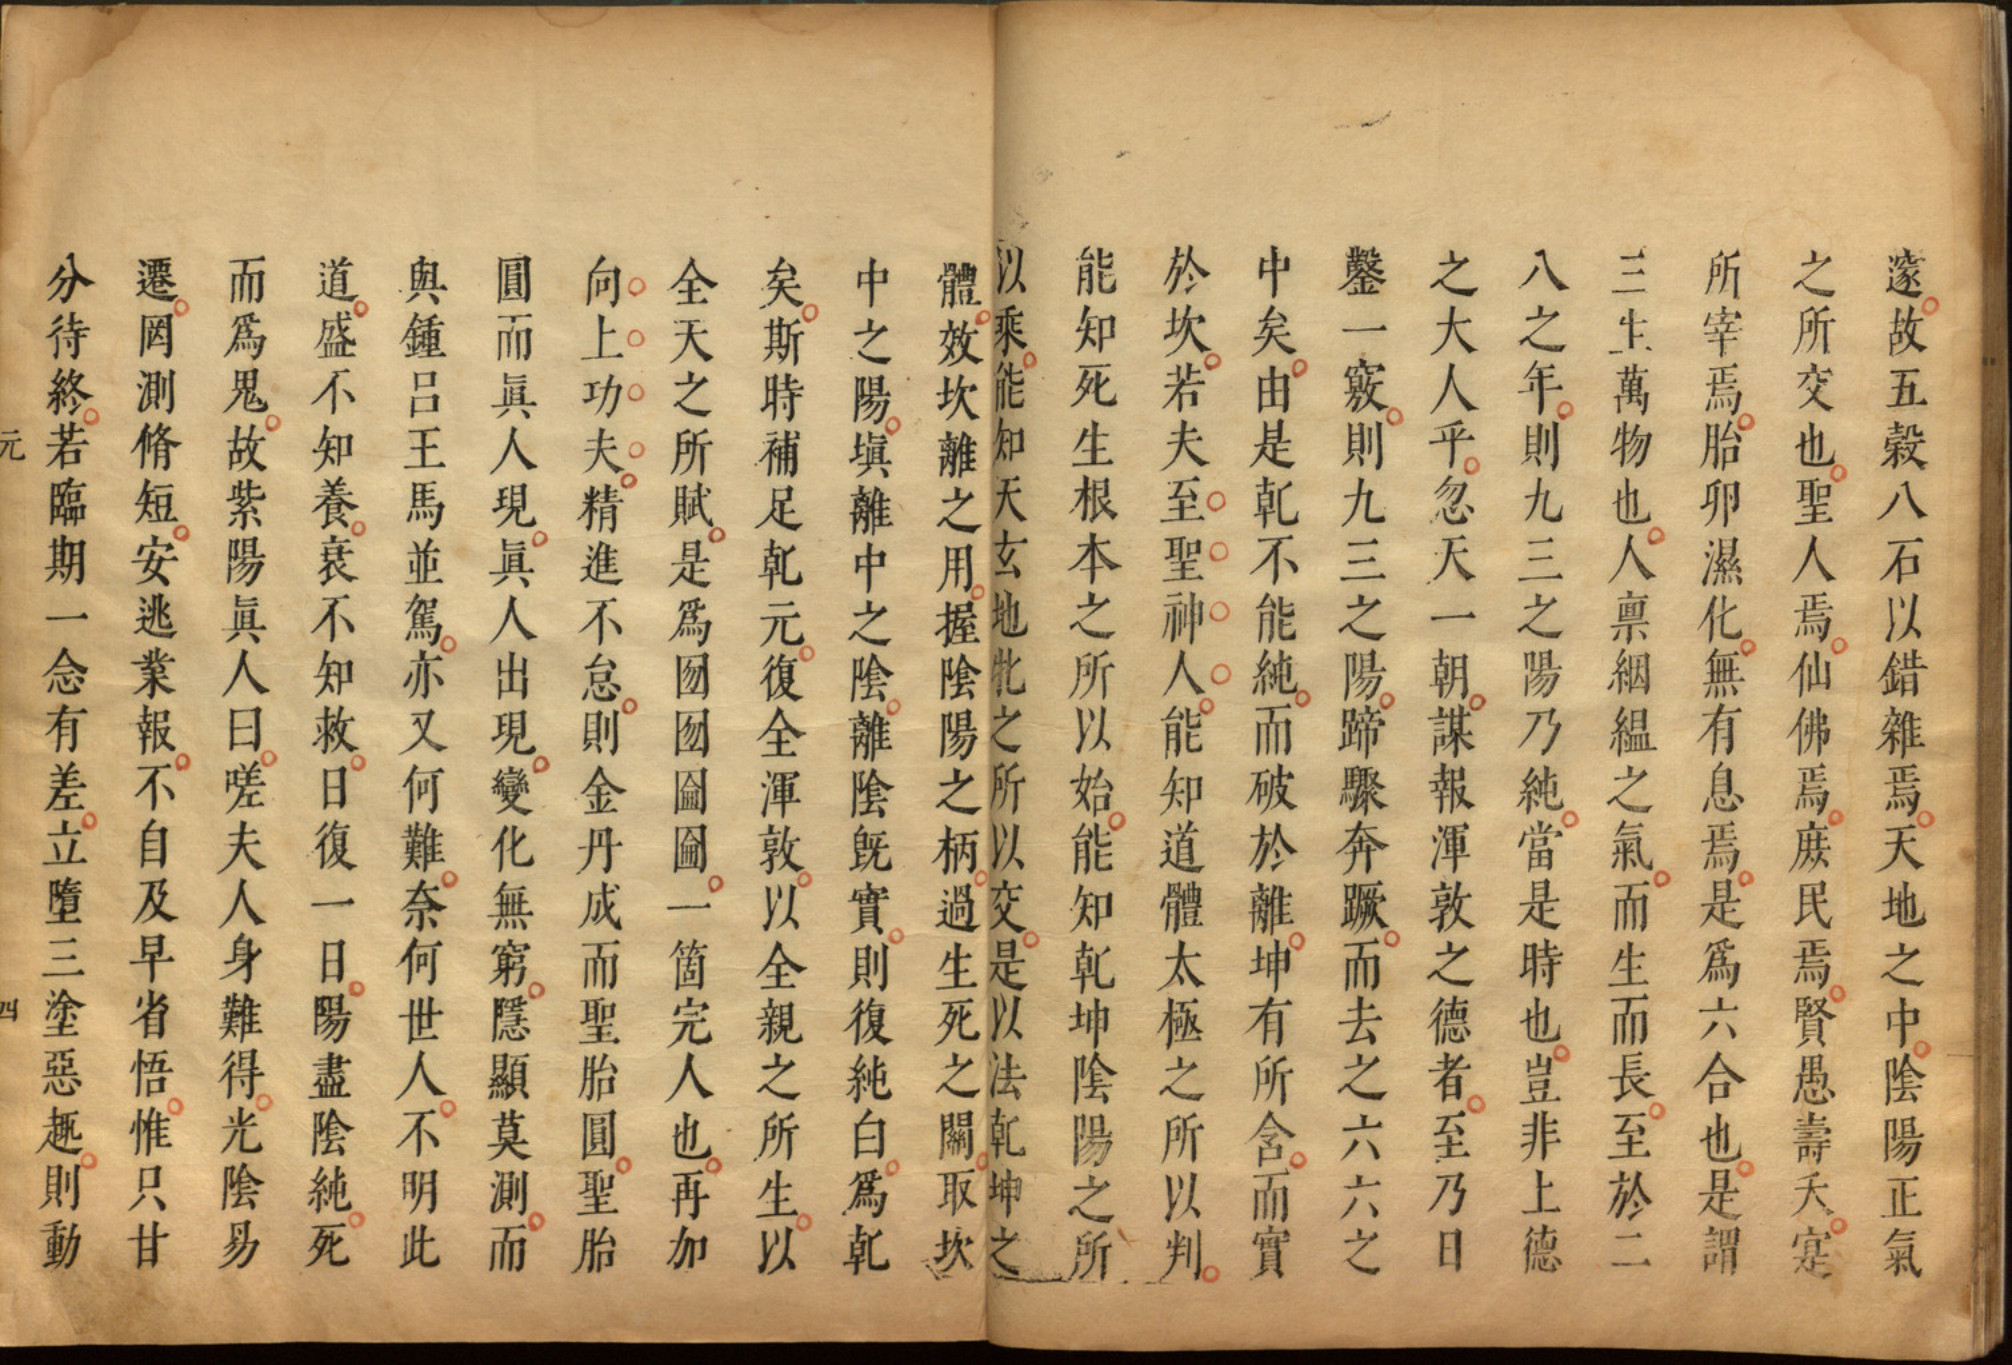 邃故五穀八石以錯雜焉天地之中陰陽正氣
之所交也聖人焉仙佛焉庶民焉賢愚壽夭寔
所宰焉胎卵濕化無有息焉是爲六合也是謂
三生萬物也人禀絪緼之氣而生而長至於二
八之年則九三之陽乃純當是時也豈非上德
之大人乎忽天一朝謀報渾敦之德者至乃日
鑿一竅則九三之陽蹄驟奔蹶而去之六六之
中矣由是乹不能純而破於離坤有所含而實
於坎若夫至聖神人能知道體太極之所以判
能知死生根本之所以始能知乹坤陰陽之所
以乘能知天玄地牝之所以交是以法乹坤之
體效坎離之用握陰陽之柄過生死之關取坎
中之陽塡離中之陰離陰旣實則復純白爲乹
矣斯時補足乹元復全渾敦以全親之所生以
全天之所賦是爲囫囫圇圇一箇完人也再加
向上功夫精進不怠則金丹成而聖胎圓聖胎
圓而眞人現眞人出現變化無窮隱顯莫測而
與鍾呂王馬並駕亦又何難奈何世人不明此
道盛不知養衰不知救日復一日陽盡陰純死
而爲鬼故紫陽眞人曰嗟夫人身難得光陰易
遷罔測脩短安逃業報不自及早省悟惟只甘
分待終若臨期一念有差立墮三塗惡趣則動
元
四